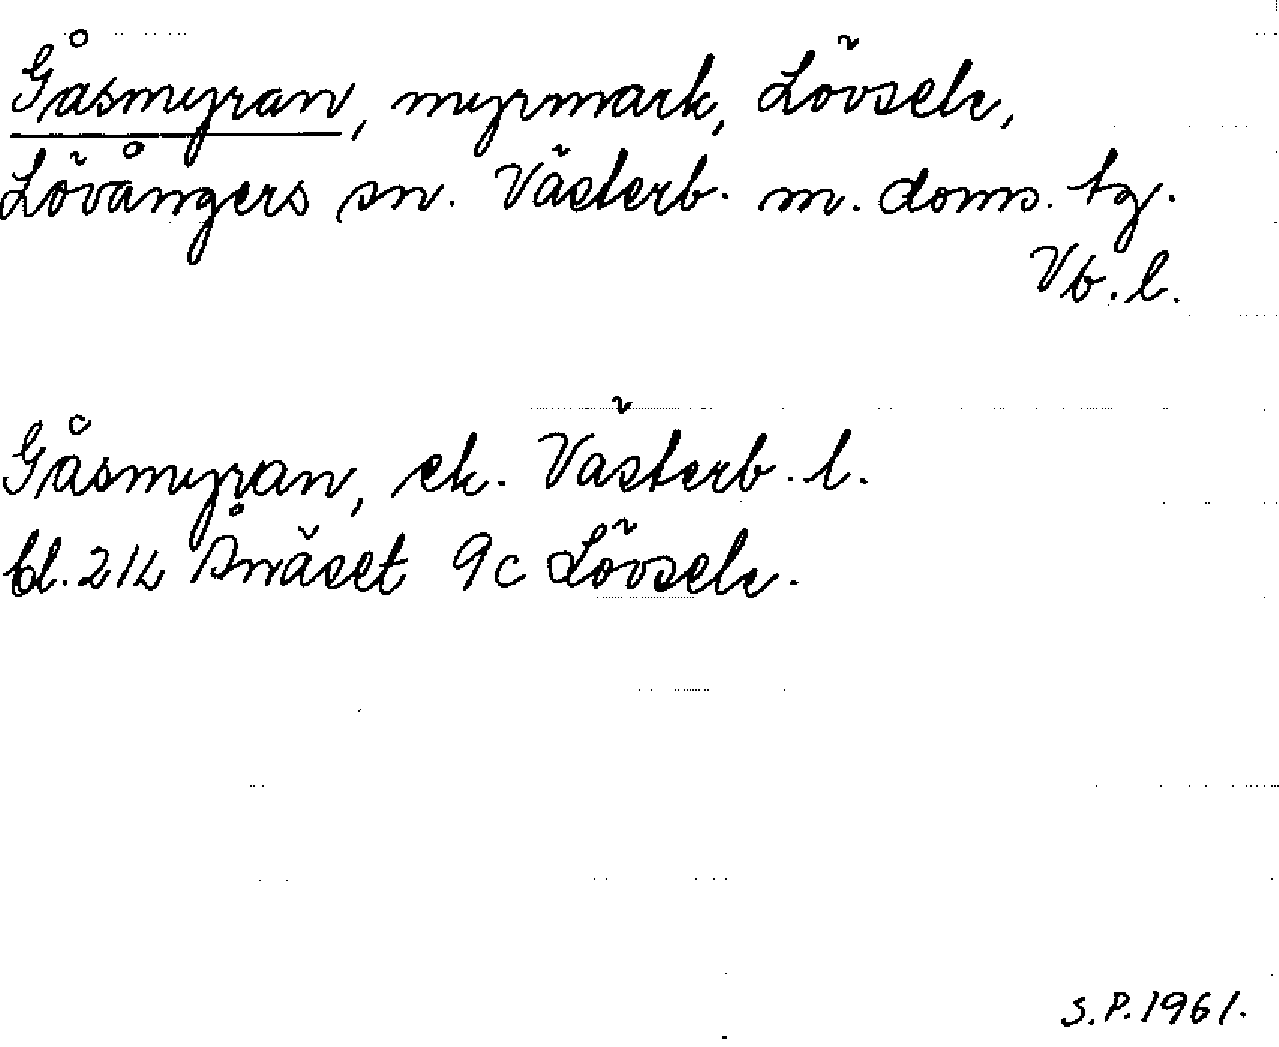 Gåsmyran, myrmark, Lövsele,
Lövångers sn. Västerb. m. doms. tg.
Vb. l.
Gåsmyran, ek. Västerb. l.
bl. 21L Ånäset 9c Lövsele.
S.P. 1961.